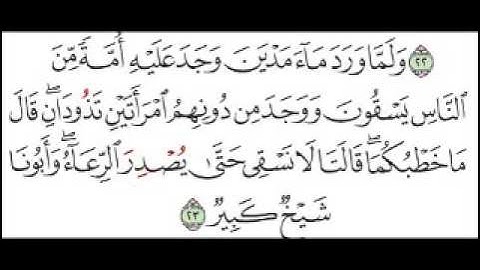 ٢٢ وَلَمَّا وَرَدَ مَآءَ مَدۡيَنَ وَجَدَ عَلَيۡهِ أُمَّةٗ مِّنَ
ٱلنَّاسِ يَسۡقُونَ وَوَجَدَ مِن دُونِهِمُ ٱمۡرَأَتَيۡنِ تَذُودَانِۖ قَالَ
مَا خَطۡبُكُمَاۖ قَالَتَا لَا نَسۡقِي حَتَّىٰ يُصۡدِرَ ٱلرِّعَآءُۖ وَأَبُونَا
شَيۡخٞ كَبِيرٞ ٢٣